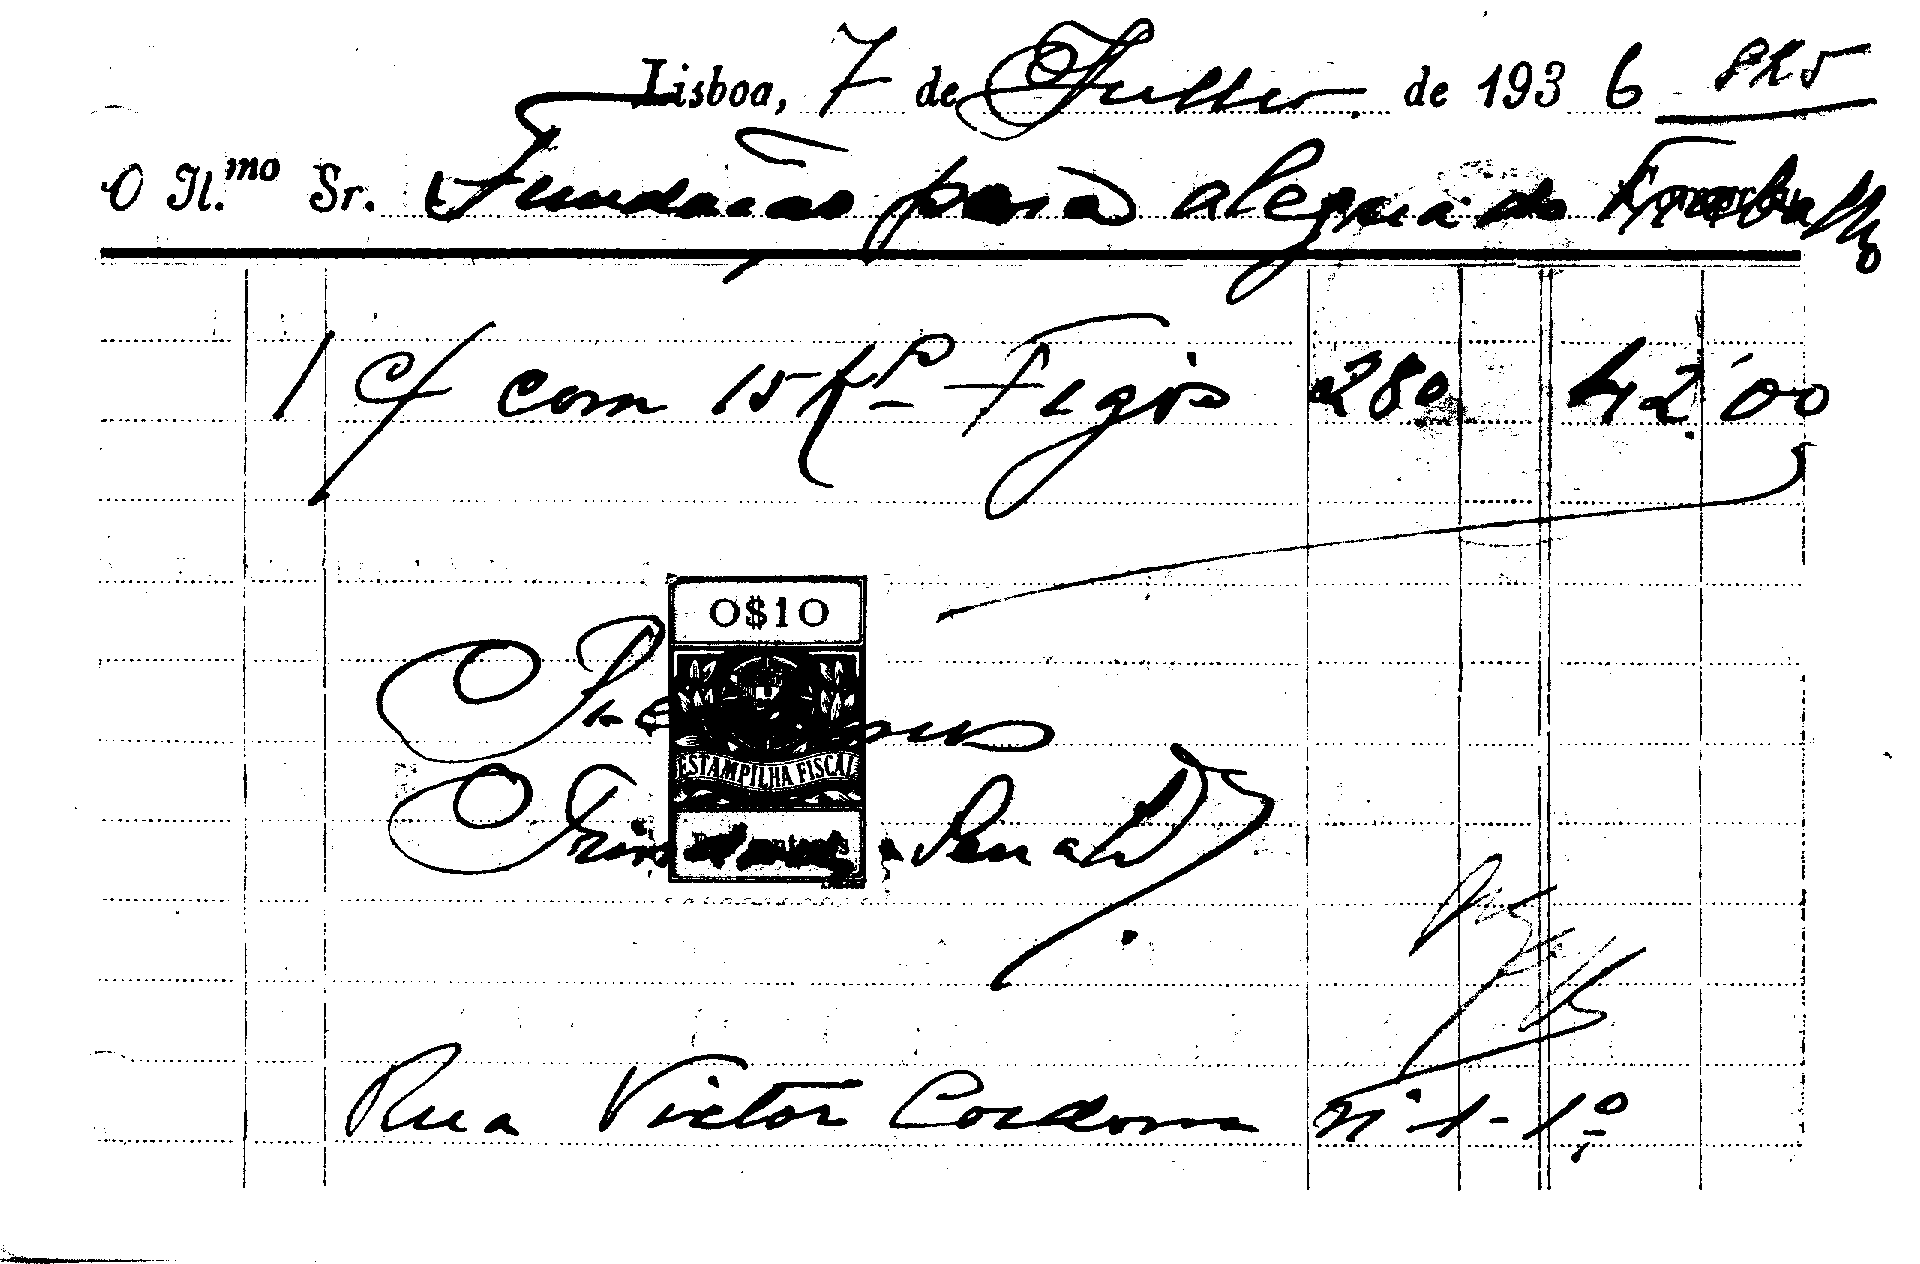 Lisboa, 7 de Julho de 1936 825
O Il.mo Sr. Fundação para alegria do Trabalho
1 c/ com 15 Kº Figos 280 42,00
0$10
ESTAMPILHA FISCAL
Trindade
Rua Victor Cordon nº 1-1º